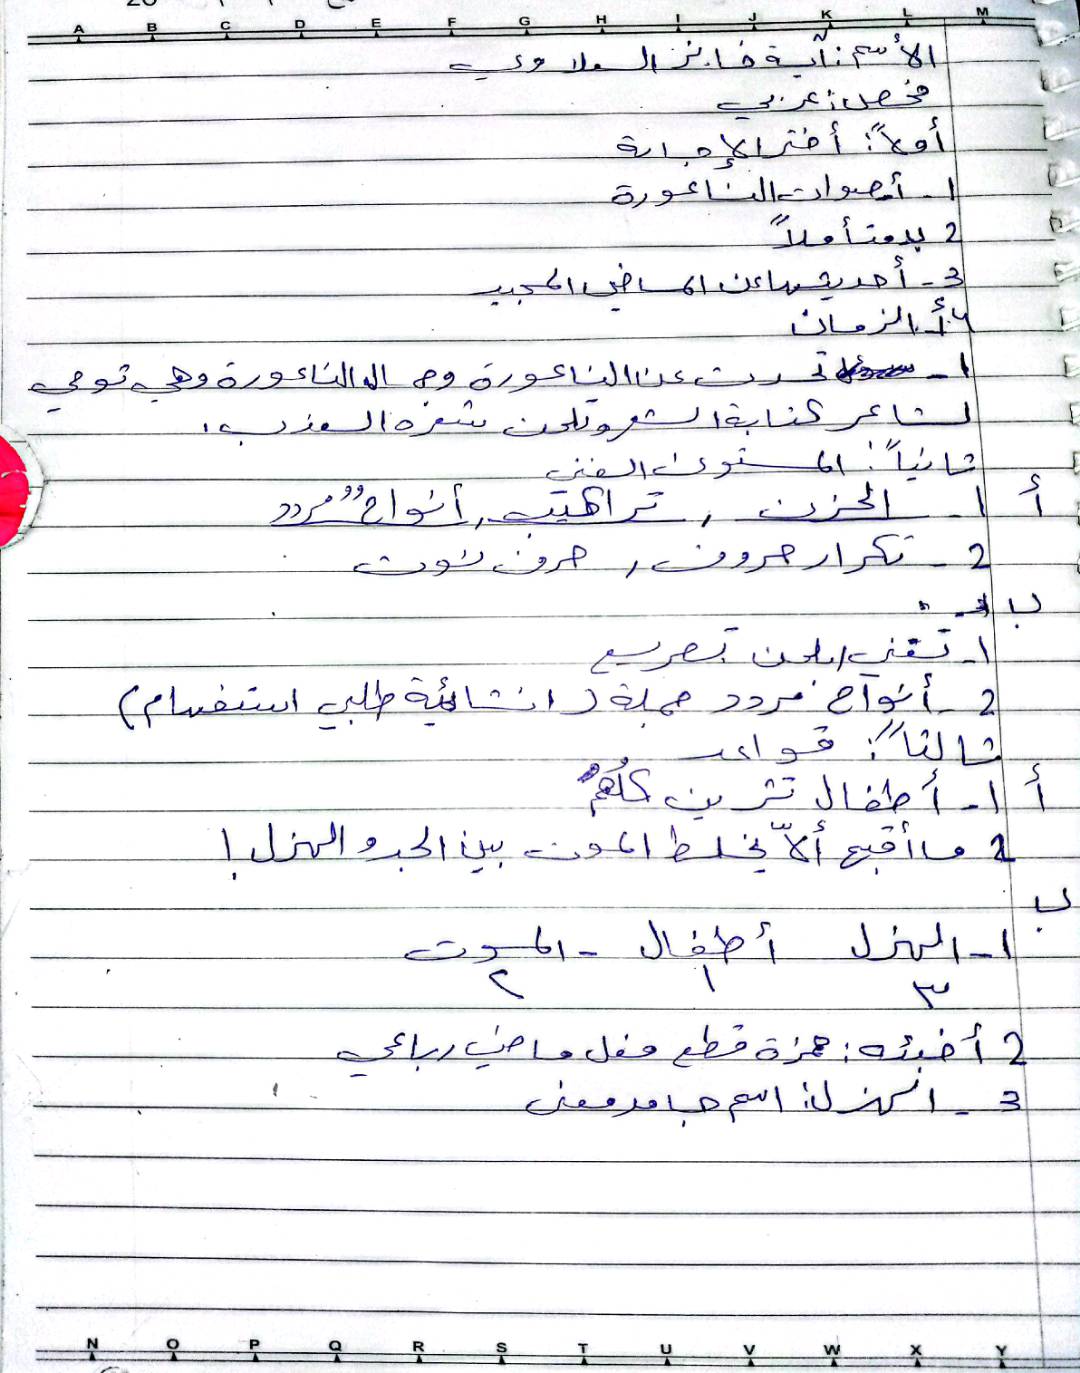 A B C D E F G H I J K L M
الأسم: آية فايز السلاوي
فحص: عربي
أولاً: أختر الإجابة
1- أصوات الناعورة
2 متأملاً
3- أحديثها عن الماضي المجيد
4- أ- الزمان
1- تحدث عن الناعورة وجمال الناعورة وهي توحي
لشاعر كتابة الشعر ولحن شعره العذب.
ثانياً: المستوى الفني
أ 1- الحزن , تراكيب , أنواح "مردد
2- تكرار حروف , حرف
ب
1- تصريع
2- أنواح مردد جملة (انشائية طلبي استفهام)
ثالثاً: قواعد
أ 1- أطفال تشرين كلُهمُ
2 ما أقبح ألّا يخلط الموت بين الجد و الهزل!
ب
1- الهزل أطفال - الموت
٣ ١ ٢
2 أخبئه: همزة قطع فعل ماضي رباعي
3- الهزل: اسم جامد معنى
N O P Q R S T U V W X Y